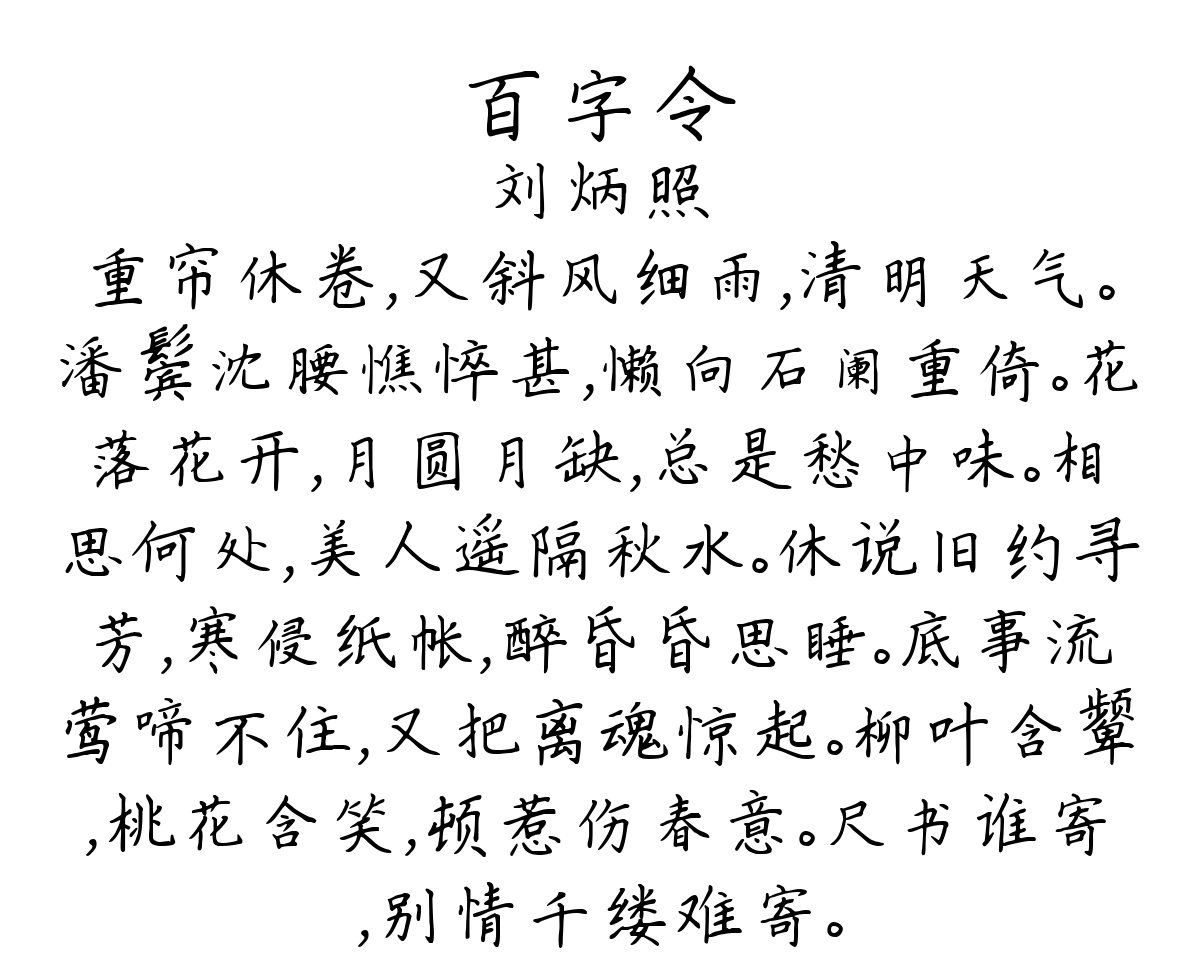 百字令
刘炳照
重帘休卷,又斜风细雨,清明天气。
潘鬓沈腰憔悴甚,懒向石阑重倚。花
落花开,月圆月缺,总是愁中味。相
思何处,美人遥隔秋水。休说旧约寻
芳,寒侵纸帐,醉昏昏思睡。底事流
莺啼不住,又把离魂惊起。柳叶含颦
,桃花含笑,顿惹伤春意。尺书谁寄
,别情千缕难寄。